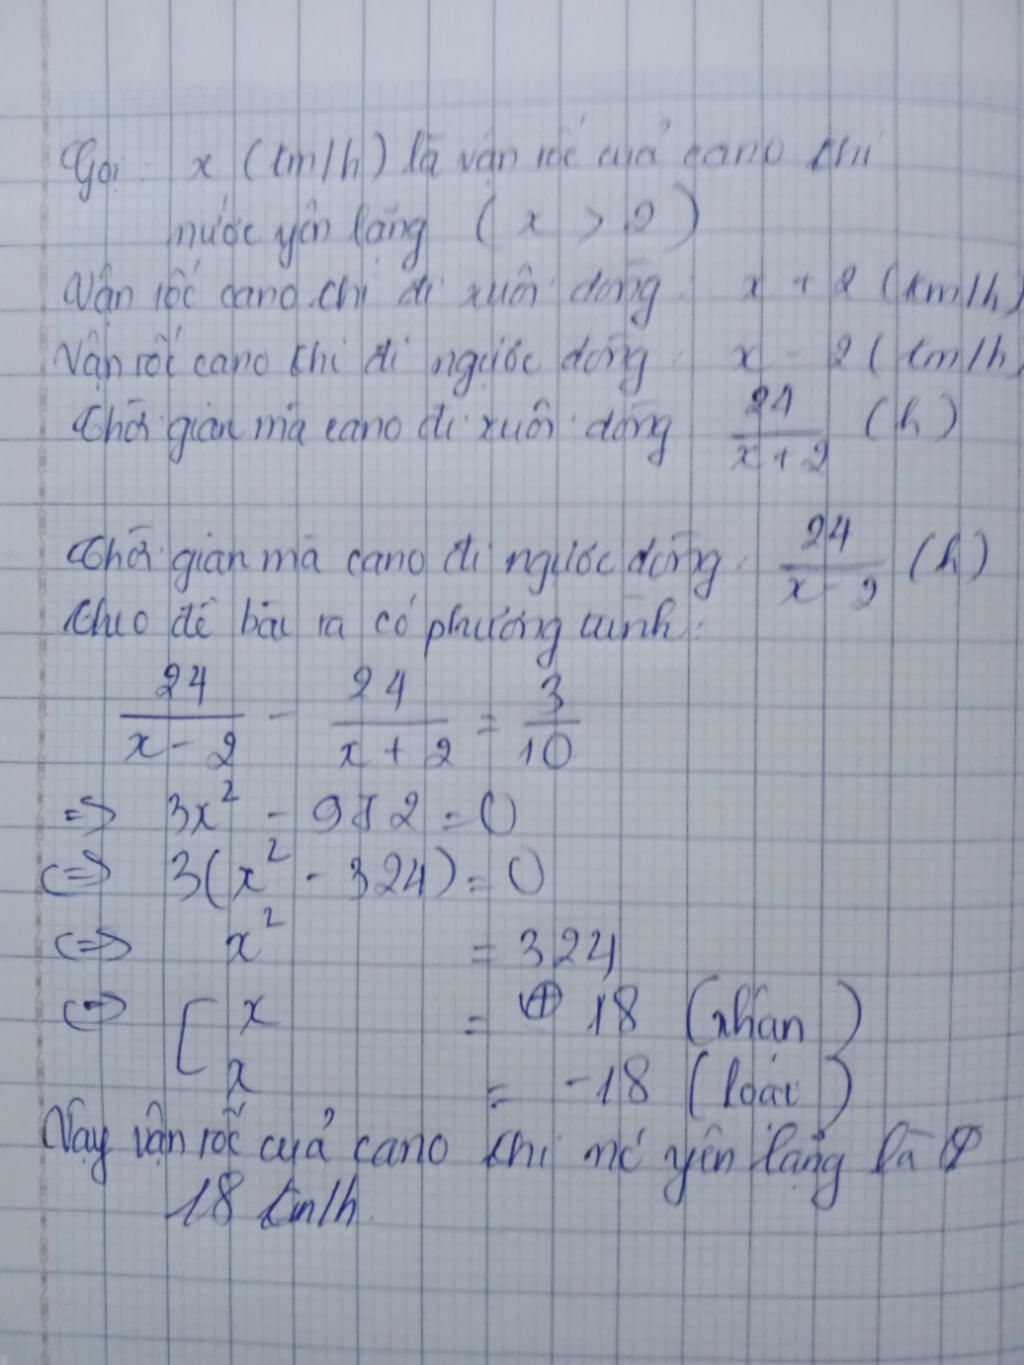 Gọi: x (km/h) là vận tốc của cano khi
nước yên lặng ( x > 2 )
Vận tốc cano khi đi xuôi dòng: x + 2 (km/h)
Vận tốc cano khi đi ngược dòng: x - 2 (km/h)
Thời gian mà cano đi xuôi dòng 24/(x + 2) (h)
Thời gian mà cano đi ngược dòng: 24/(x - 2) (h)
theo đề bài ra có phương trình:
24/(x - 2) - 24/(x + 2) = 3/10
=> 3x² - 972 = 0
<=> 3(x² - 324) = 0
<=> x² = 324
<=> [ x = + 18 (nhận)
x = -18 (loại)
Vậy vận tốc của cano khi nc yên lặng là
18 km/h